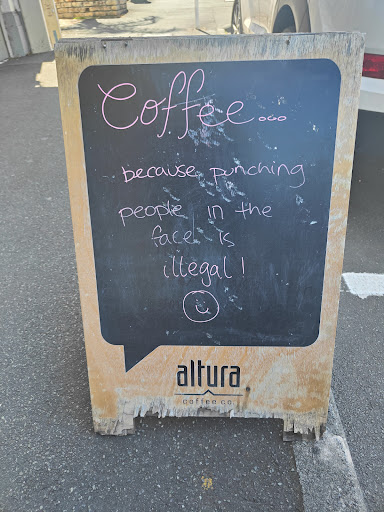 Coffee...
because punching
people in the
face is
illegal!
altura
coffee co.